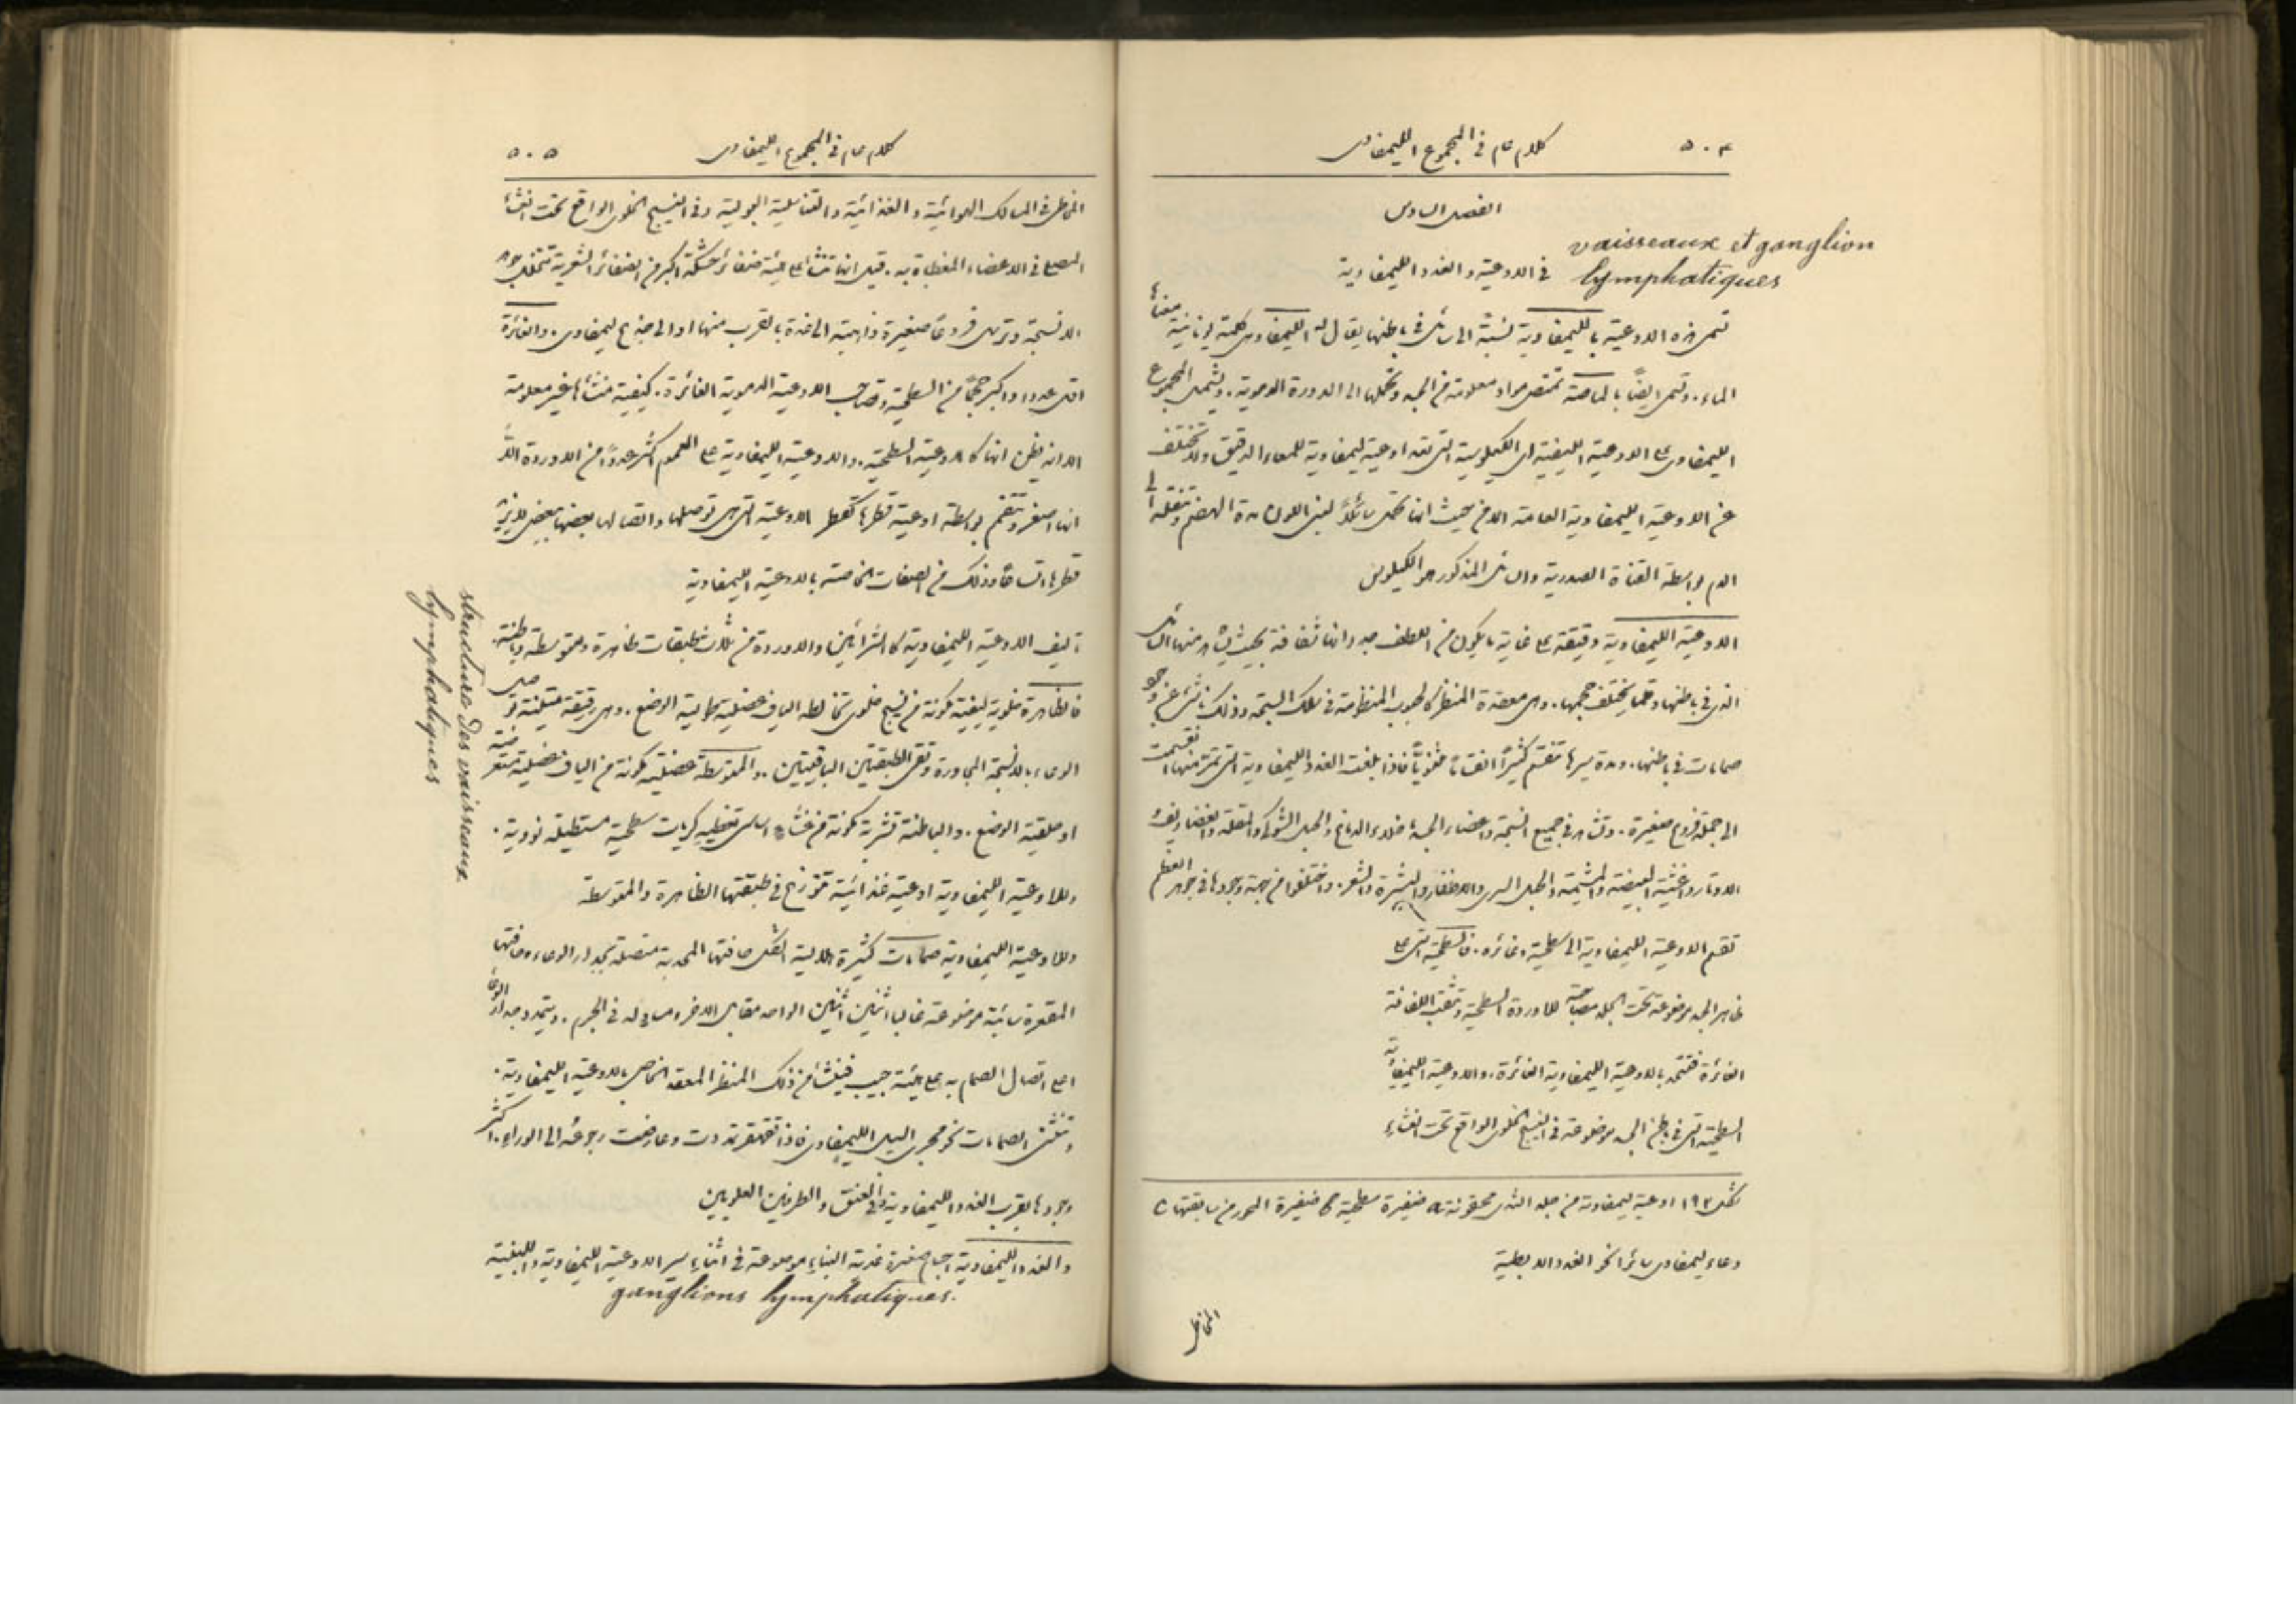 ٥٠٤
كلام عام في المجموع الليمفاوي
الفصل السادس
vaisseaux et ganglion
lymphatiques
في الاوعية والغدد الليمفاوية
تسمى هذه الاوعية بالليمفاوية نسبةً الى سائل في باطنها يقال له الليمفا وهي كلمة يونانية معناها
الماء. وتسمى ايضًا بالماصة تمتص مواد معلومة من الجسد وتحملها الى الدورة الدموية. ويشمل المجموع
الليمفاوي على الاوعية اللبنية اي الكيلوسية التي تعد اوعية ليمفاوية للمعاء الدقيق ولا تختلف
عن الاوعية الليمفاوية العامة الا من حيث انها تحمل سائلاً لبني اللون مدة الهضم وتنقله الى
الدم بواسطة القناة الصدرية والسائل المذكور هو الكيلوس
الاوعية الليمفاوية دقيقة على غاية ما يكون من اللطف جدرانها شفافة بحيث يشاهد منها السائل
الذي في باطنها وقلما يختلف حجمها. وهي معقدة المنظر كالحبوب المنظومة في سلك السبحة وذلك ناشئ عن وجود
صمامات في باطنها. ومدة سيرها تنقسم كثيرًا انقسامًا ثنويًا فاذا بلغت الغدد الليمفاوية التي تمر منها انقسمت
الى جملة فروع صغيرة. وتشاهد في جميع انسجة واعضاء الجسد ما خلا الدماغ والحبل الشوكي والمقلة والغضاريف
الاوتار واغشية البيضة والمشيمة والحبل السري والاظفار والبشرة والشعر. واختلفوا من جهة وجودها في جوهر العظم
تقسم الاوعية الليمفاوية الى سطحية وغائرة. فالسطحية التي على
ظاهر الجسد موضوعة تحت الجلد مصاحبة للاوردة السطحية وتثقب اللفافة
الغائرة فتتحد بالاوعية الليمفاوية الغائرة. والاوعية الليمفاوية
السطحية التي في باطن الجسد موضوعة في النسيج الخلوي الواقع تحت الغشاء
شكل ١٩٢ اوعية ليمفاوية من جلد الثدي محقونة a ضفيرة سطحية b ضفيرة اغور من سابقتها c
وعاء ليمفاوي سائر نحو الغدد الابطية
المخاطي
٥٠٥
كلام عام في المجموع الليمفاوي
المخاطي في المسالك الهوائية والغذائية والتناسلية البولية وفي النسيج الخلوي الواقع تحت الغشاء
المصلي في الاعضاء المغطاة به. قيل انها تنشأ على هيئة ضفائر شبكية اكبر من الضفائر الشعرية تتخلل
الانسجة وترسل فروعًا صغيرة ذاهبة الى غدة بالقرب منها او الى جذع ليمفاوي. والغائرة
اقل عددا واكبر حجمًا من السطحية وتصاحب الاوعية الدموية الغائرة. كيفية منشأها غير معلومة
الا انه يظن انها كالاوعية السطحية. والاوعية الليمفاوية على العموم اكثر عددًا من الاوردة الا
انها اصغر وتتفمم بواسطة اوعية قطرها كقطر الاوعية التي هي توصلها واتصالها بعضها ببعض لا يزيد
قطرها اتساعًا وذلك من الصفات الخاصة بالاوعية الليمفاوية
structure des vaisseaux.
lymphatiques
تأليف الاوعية الليمفاوية كالشرائين والاوردة من ثلاث طبقات ظاهرة ومتوسطة وباطنة.
فالظاهرة خلوية ليفية مكونة من نسيج خلوي تخالطه الياف عضلية طولية الوضع. وهي رقيقة متينة توصل
الوعاء بالانسجة المجاورة وتقي الطبقتين الباقيتين. والمتوسطة عضلية مكونة من الياف عضلية مستعرضة
او حلقية الوضع. والباطنة قشرية مكونة من غشاء اساسي تغطيه كريات سطحية مستطيلة نووية.
وللاوعية الليمفاوية اوعية غذائية تتوزع في طبقتها الظاهرة والمتوسطة
وللاوعية الليمفاوية صمامات كثيرة هلالية الشكل حافتها المحدبة متصلة بجدار الوعاء وحافتها
المقعرة سائبة موضوعة غالبا اثنين اثنين الواحد مقابل الاخر ومساو له في الحجم. ويتمدد جدار الوعاء
اعلى اتصال الصمام به على هيئة جيب فينشأ من ذلك المنظر المعقد الخاص بالاوعية الليمفاوية.
وتنثني الصمامات نحو مجرى السيل الليمفاوي فاذا تقهقر تمددت وعارضت رجوعه الى الوراء. اكثر
وجودها بقرب الغدد الليمفاوية وفي العنق والطرفين العلويين
والغدد الليمفاوية اجسام صغيرة غددية البناء موضوعة في اثناء سير الاوعية الليمفاوية واللبنية
ganglions lymphatiques.